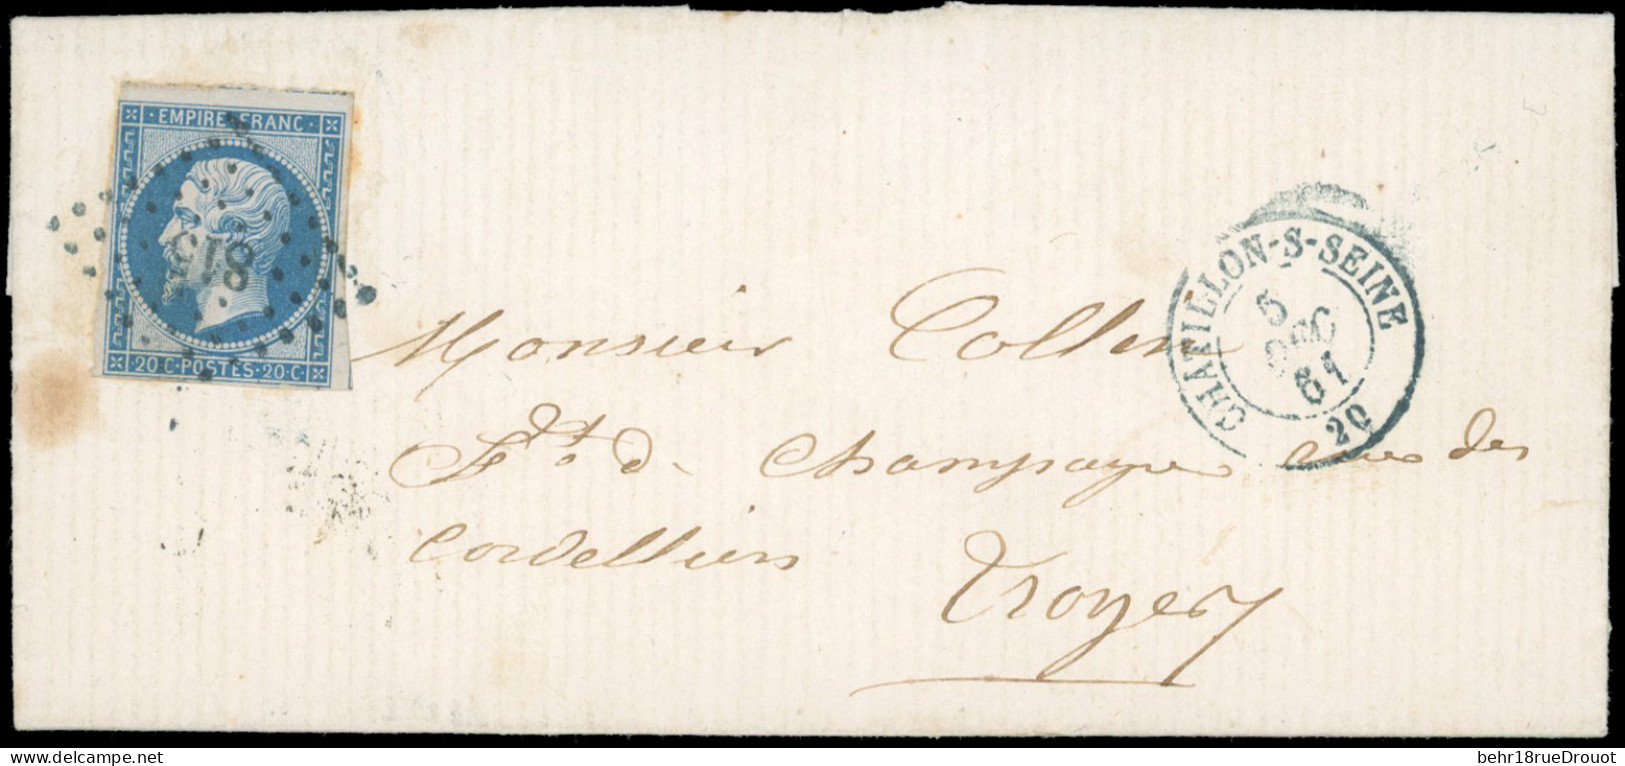 EMPIRE FRANC
815
20·C·POSTES·20·C
CHATILLON-S-SEINE
5
DEC
61
20
Monsieur Collin
Fbt. d. Champagne rue des
Cordelliers
Troyes
behr18rueDrouot